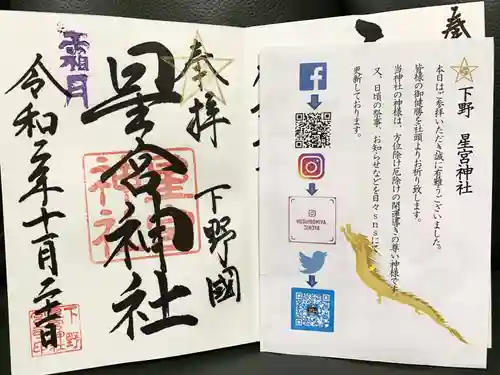 奉拝
下野國
星宮神社
霜月
令和二年十一月二十二日
下野 星宮神社
本日はご参拝いただき誠に有難うございました。
皆様の御健勝を社頭よりお祈り致します。
当神社の神様は、方位除け厄除けの開運導きの尊い神様です。
又、日頃の祭事、お知らせなどを日々snsにて
更新しております。
HOSHINOMIYA_
JINJYA
奉